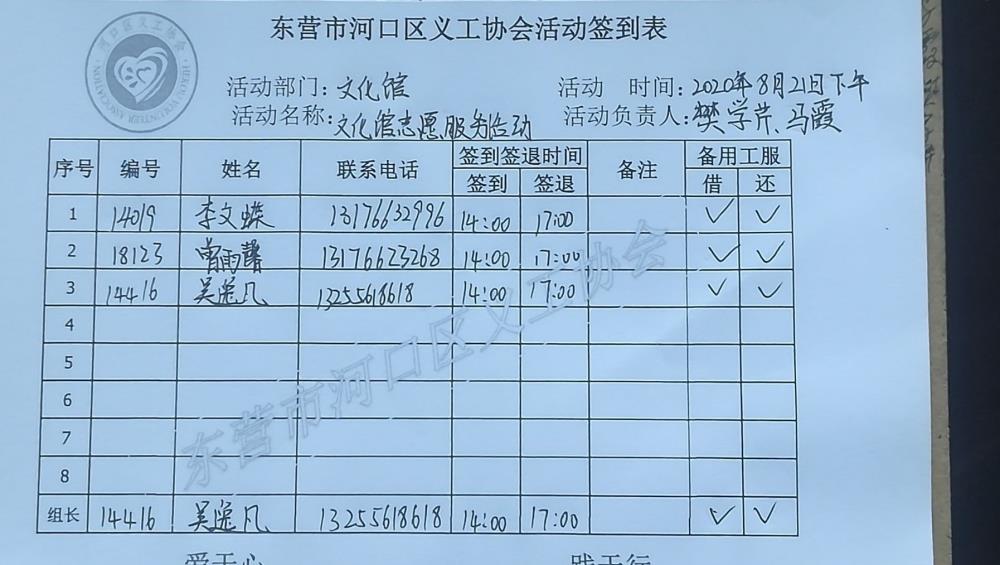 东营市河口区义工协会活动签到表
河口区义工协会
HEKOU VOLUNTEER ASSOCIATION
活动部门：文化馆 活动 时间：2020年8月21日下午
活动名称：文化馆志愿服务活动 活动负责人：樊学芹、马霞
序号 编号 姓名 联系电话 签到签退时间 备注 备用工服
签到 签退 借 还
1 14019 李文蝶 13176632996 14:00 17:00 ✓ ✓
2 18123 曾雨馨 13176623268 14:00 17:00 ✓ ✓
3 14416 吴逸凡 13255618618 14:00 17:00 ✓ ✓
4
5
6
7
8
组长 14416 吴逸凡 13255618618 14:00 17:00 ✓ ✓
东营市河口区义工协会
爱于心 践于行